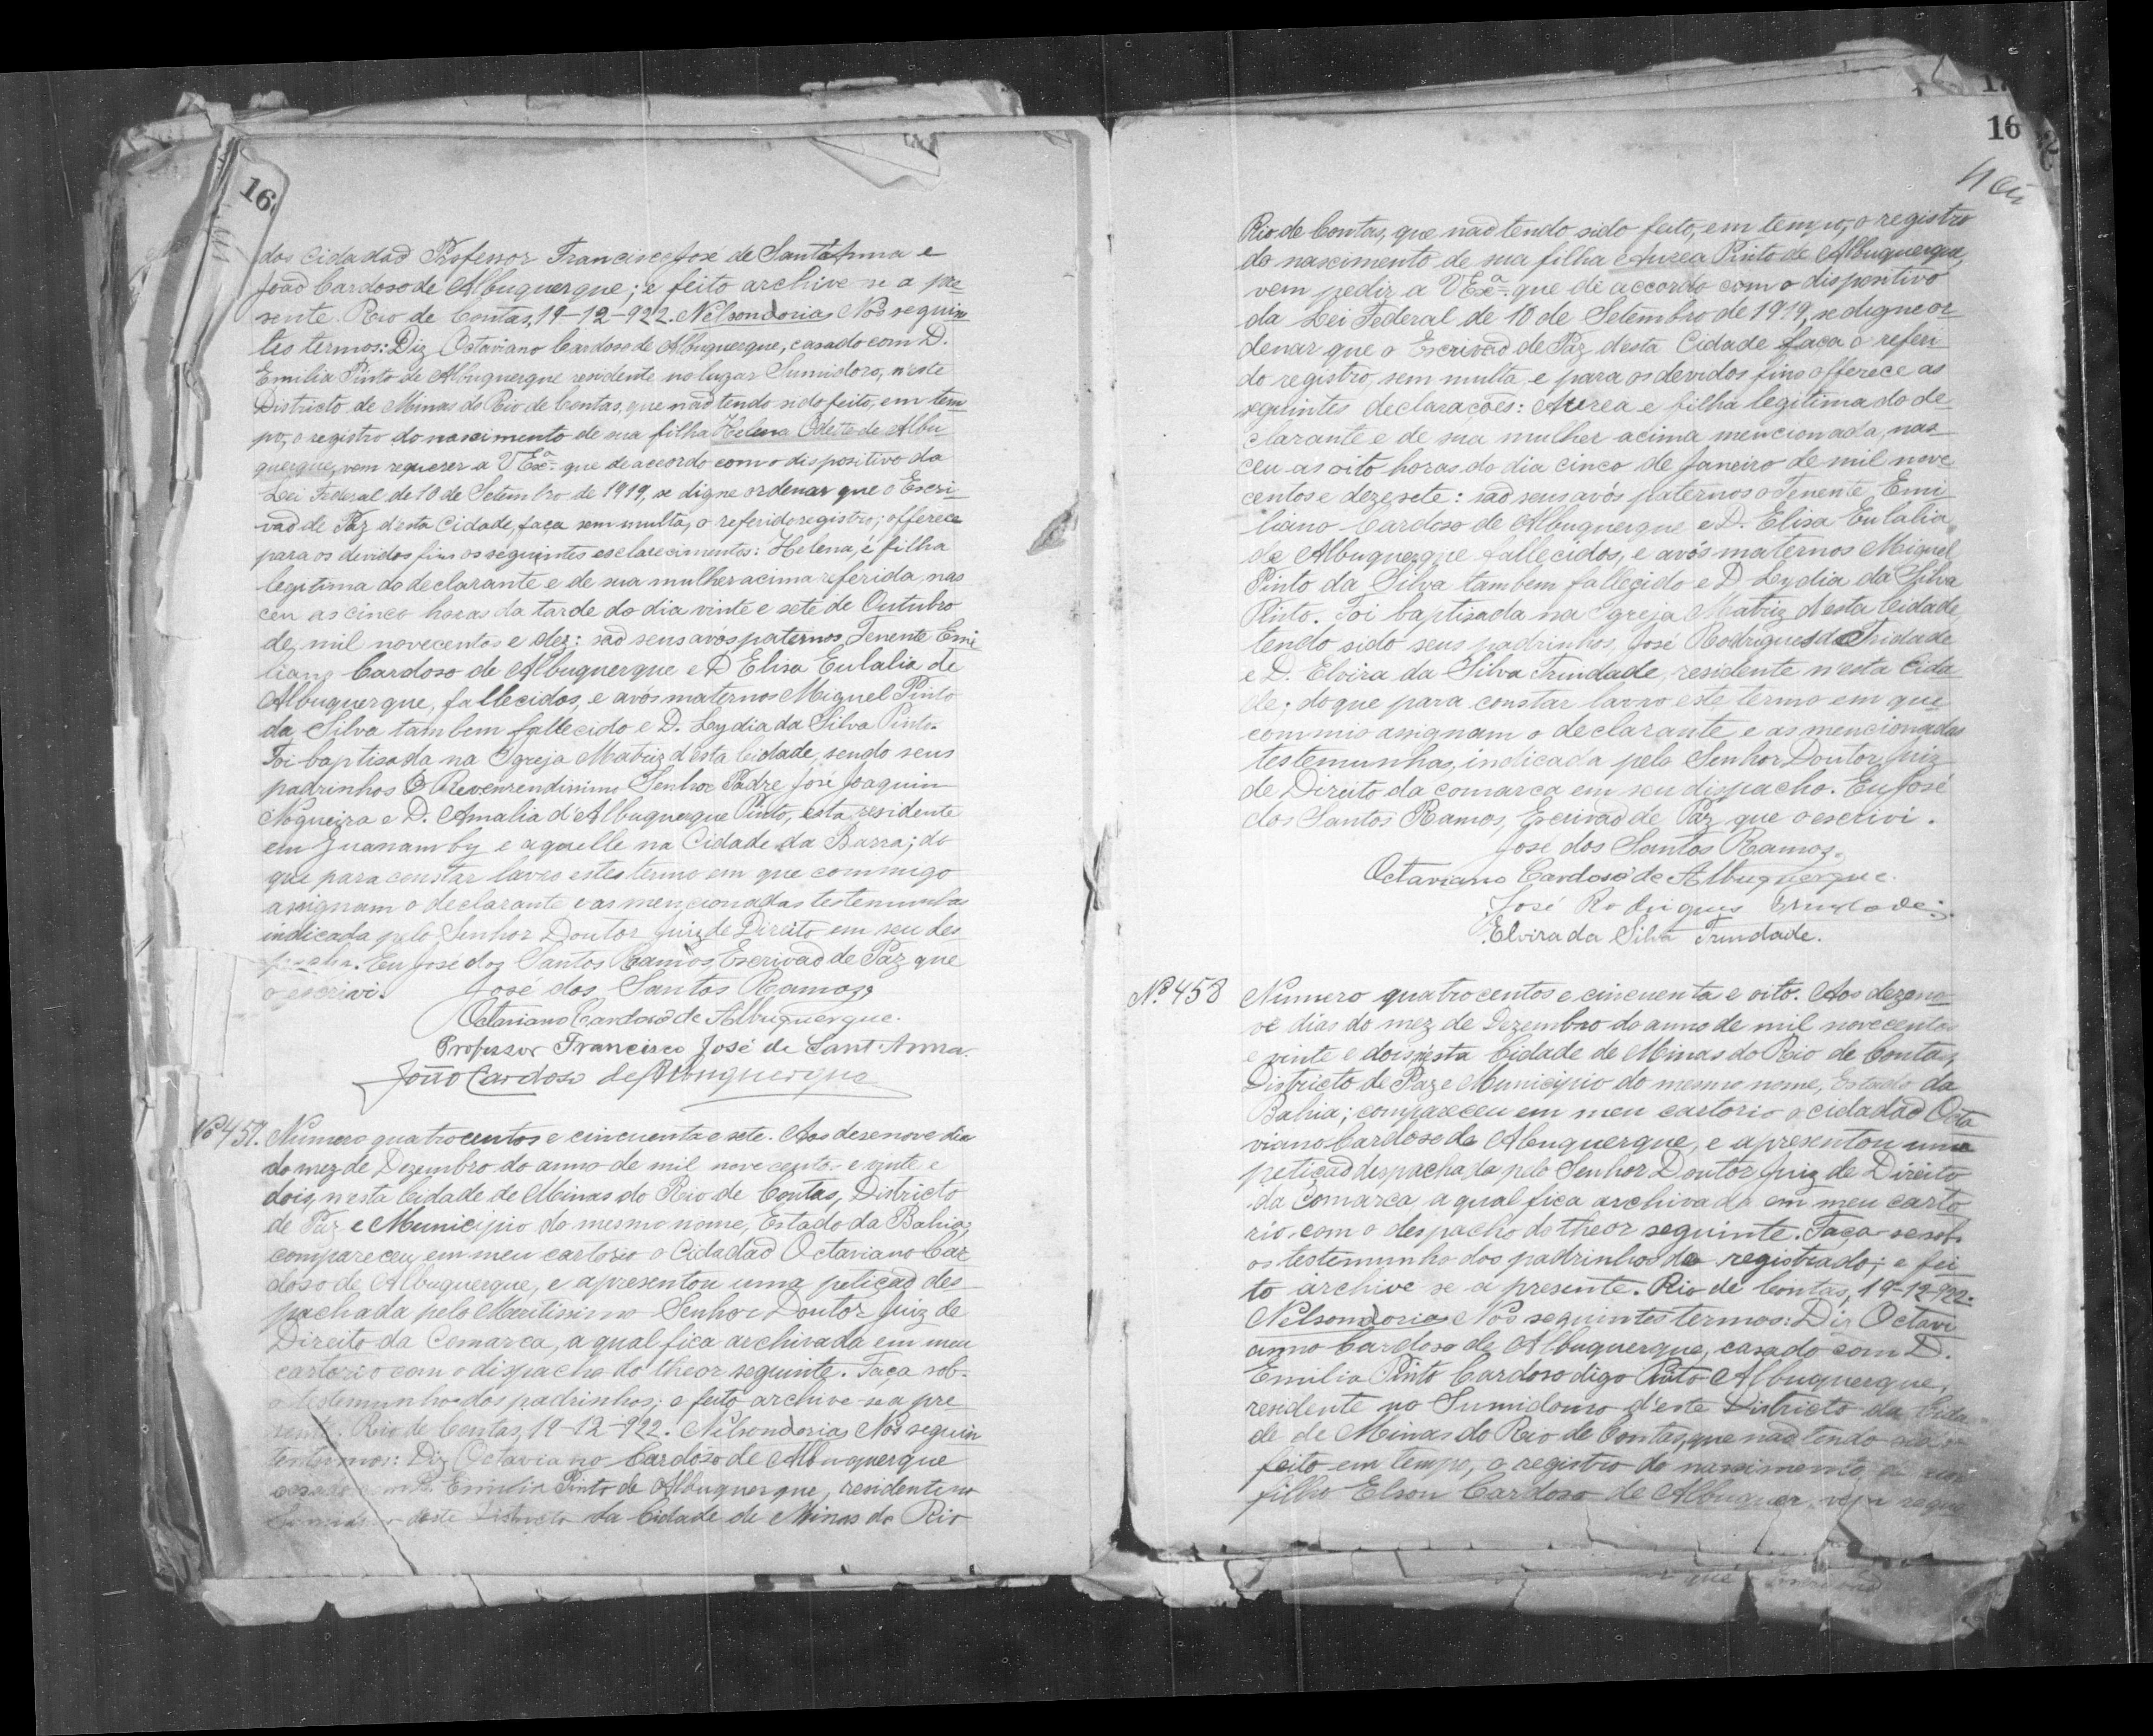 16
dos Cidadaõ Professor Francisco José de Sant'Anna e
João Cardoso de Albuquerque; e feito archive se a pre-
sente. Rio de Contas, 19-12-922. Nelson Doria, Nos seguin
tes termos: Diz Octaviano Cardoso de Albuquerque, casado com D.
Emilia Pinto de Albuquerque residente no lugar Sumidoro, n'este
Districto de Minas do Rio de Contas, que naõ tendo sido feito, em tem
po, o registro do nascimento de sua filha Helena Odette de Albu
querque, vem requerer a V Exª. que de accordo com o dispositivo da
Lei Federal de 10 de Setembro de 1919, se digne ordenar que o Escri-
vaõ de Paz d'esta Cidade, faça sem multa, o referido registro; offerece
para os devidos fins os seguintes esclarecimentos: Helena, é filha
legitima do declarante e de sua mulher acima referida, nas
ceu as cinco horas da tarde do dia vinte e sete de Outubro
de mil novecentos e dez: saõ seus avós paternos, Tenente Emi
liano Cardoso de Albuquerque e D Elisa Eulalia de
Albuquerque, fallecidos, e avós maternos Miguel Pinto
da Silva tambem fallecido e D. Leydia da Silva Pinto.
Foi baptisada na Igreja Matriz d'esta Cidade, sendo seus
padrinhos O Revenrendissimo Senhor Padre José Joaquim
Nogueira e D. Amalia d'Albuquerque Pinto, esta residente
em Guanamby e aquelle na Cidade da Barra; do
que para constar lavro estes termo em que commigo
assignam o declarante e as mencionadas testemunhas
indicada pelo Senhor Doutor Juiz de Direito em seu des
pacho. Eu José dos Santos Ramos, Escrivaõ de Paz que
o escrivi. José dos Santos Ramos,
Octaviano Cardoso de Albuquerque.
Professor Francisco José de Sant'Anna.
João Cardoso de Albuquerque
Nº 457. Numero quatrocentos e cincuenta e sete. Aos desenove dia
do mez de Dezembro do anno de mil novecentos e vinte e
dois, n'esta Cidade de Minas do Rio de Contas, Districto
de Paz e Municipio do mesmo nome, Estado da Bahia;
compareceu em meu cartorio o Cidadaõ Octaviano Car
doso de Albuquerque, e apresentou uma petiçaõ des-
pachada pelo Meritissimo Senhor Doutor Juiz de
Direito da Comarca, a qual fica archivada em meu
cartorio com o dispacho do theor seguinte. Faça sob-
o testemunho dos padrinhos; e feito archive se a pre
sente. Rio de Contas, 19-12-922. Nelson Doria, Nos seguin
tes termos: Diz Octaviano Cardoso de Albuquerque
casado com D. Emilia Pinto de Albuquerque, residente no
Sumidoro deste Districto da Cidade de Minas do Rio
16
Rio de Contas, que naõ tendo sido feito, em tempo, o registro
do nascimento de sua filha Aurea Pinto de Albuquerque,
vem pedir a V Exª. que de accordo com o dispositivo
da Lei Federal de 10 de Setembro de 1919, se digne or
denar que o Escrivaõ de Paz desta Cidade faça o referi
do registro, sem multa, e para os devidos fins offerece as
seguintes declarações: Aurea e filha legitima do de-
clarante e de sua mulher acima mencionada, nas
ceu as oito horas do dia cinco de Janeiro de mil nove
centos e dezesete: saõ seus avós paternos o Tenente Emi
liano Cardoso de Albuquerque e D. Elisa Eulalia
de Albuquerque fallecidos, e avós maternos Miguel
Pinto da Silva tambem fallecido e D Leydia da Silva
Pinto. Foi baptisada na Igreja Matriz d'esta Cidade,
tendo sido seus padrinhos, José Rodrigues da Tridade
e D. Elvira da Silva Trindade, residente n'esta Cida
de; do que para constar lavro este termo em que
commigo assignam o declarante e as mencionadas
testemunhas, indicada pelo Senhor Doutor Juiz
de Direito da comarca em seu dispacho. Eu José
dos Santos Ramos, Escrivaõ de Paz que o escrivi.
José dos Santos Ramos,
Octaviano Cardoso de Albuquerque.
José Rodrigues Trindade.
Elvira da Silva Trindade.
Nº 458 Numero quatrocentos e cincuenta e oito. Aos dezeno-
ve dias do mez de Dezembro do anno de mil novecentos
e vinte e dois, n'esta Cidade de Minas do Rio de Contas,
Districto de Paz e Municipio do mesmo nome, Estado da
Bahia; compareceu em meu cartorio o cidadaõ Octa
viano Cardoso de Albuquerque, e apresentou uma
petiçaõ despachada pelo Senhor Doutor Juiz de Direito
da Comarca, a qual fica archivada em meu carto
rio com o despacho do theor seguinte. Faça-se sob
os testemunho dos padrinhos do registrado; e fei
to archive se a presente. Rio de Contas, 19-12-922.
Nelson Doria, Nos seguintes termos: Diz Octavi
anno Cardoso de Albuquerque, casado com D.
Emilia Pinto Cardoso digo Pinto Albuquerque,
residente no Sumidouro d'este Districto da Cida
de de Minas do Rio de Contas, que naõ tendo sido
feito em tempo, o registro do nascimento de seu
filho Elson Cardoso de Albuquer, vem reque